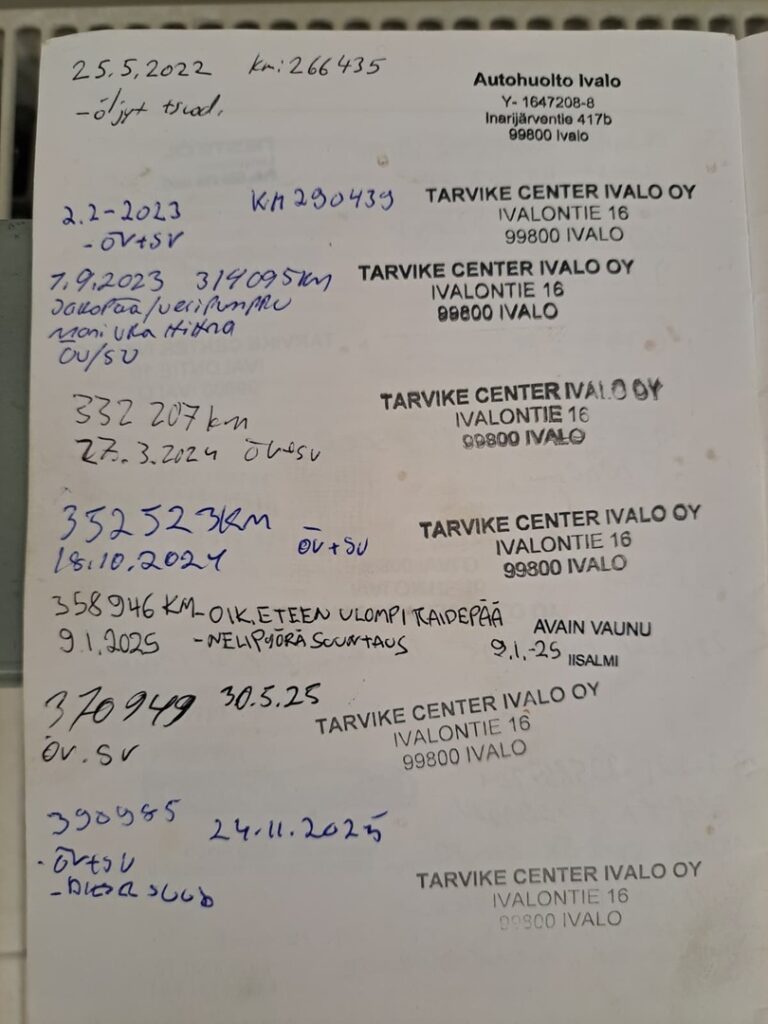 25.5.2022 km: 266435
-öljyt
Autohuolto Ivalo
Y- 1647208-8
Inarijärventie 417b
99800 Ivalo
2.2-2023 KM 290439
- ÖV+SV
TARVIKE CENTER IVALO OY
IVALONTIE 16
99800 IVALO
1.9.2023 314095KM
Jakopää/vesipumppu
Moniurahihna
ÖV/SV
TARVIKE CENTER IVALO OY
IVALONTIE 16
99800 IVALO
332 207 km
27.3.2024 ÖV+SV
TARVIKE CENTER IVALO OY
IVALONTIE 16
99800 IVALO
352523KM
18.10.2024 ÖV+SV
TARVIKE CENTER IVALO OY
IVALONTIE 16
99800 IVALO
358946 KM -OIK. ETEEN ULOMPI RAIDEPÄÄ
9.1.2025 -NELIPYÖRÄSUUNTAUS
AVAIN VAUNU
9.1.-25 IISALMI
370949 30.5.25
ÖV.SV
TARVIKE CENTER IVALO OY
IVALONTIE 16
99800 IVALO
390985 24.11.2025
- ÖV+SV
TARVIKE CENTER IVALO OY
IVALONTIE 16
99800 IVALO